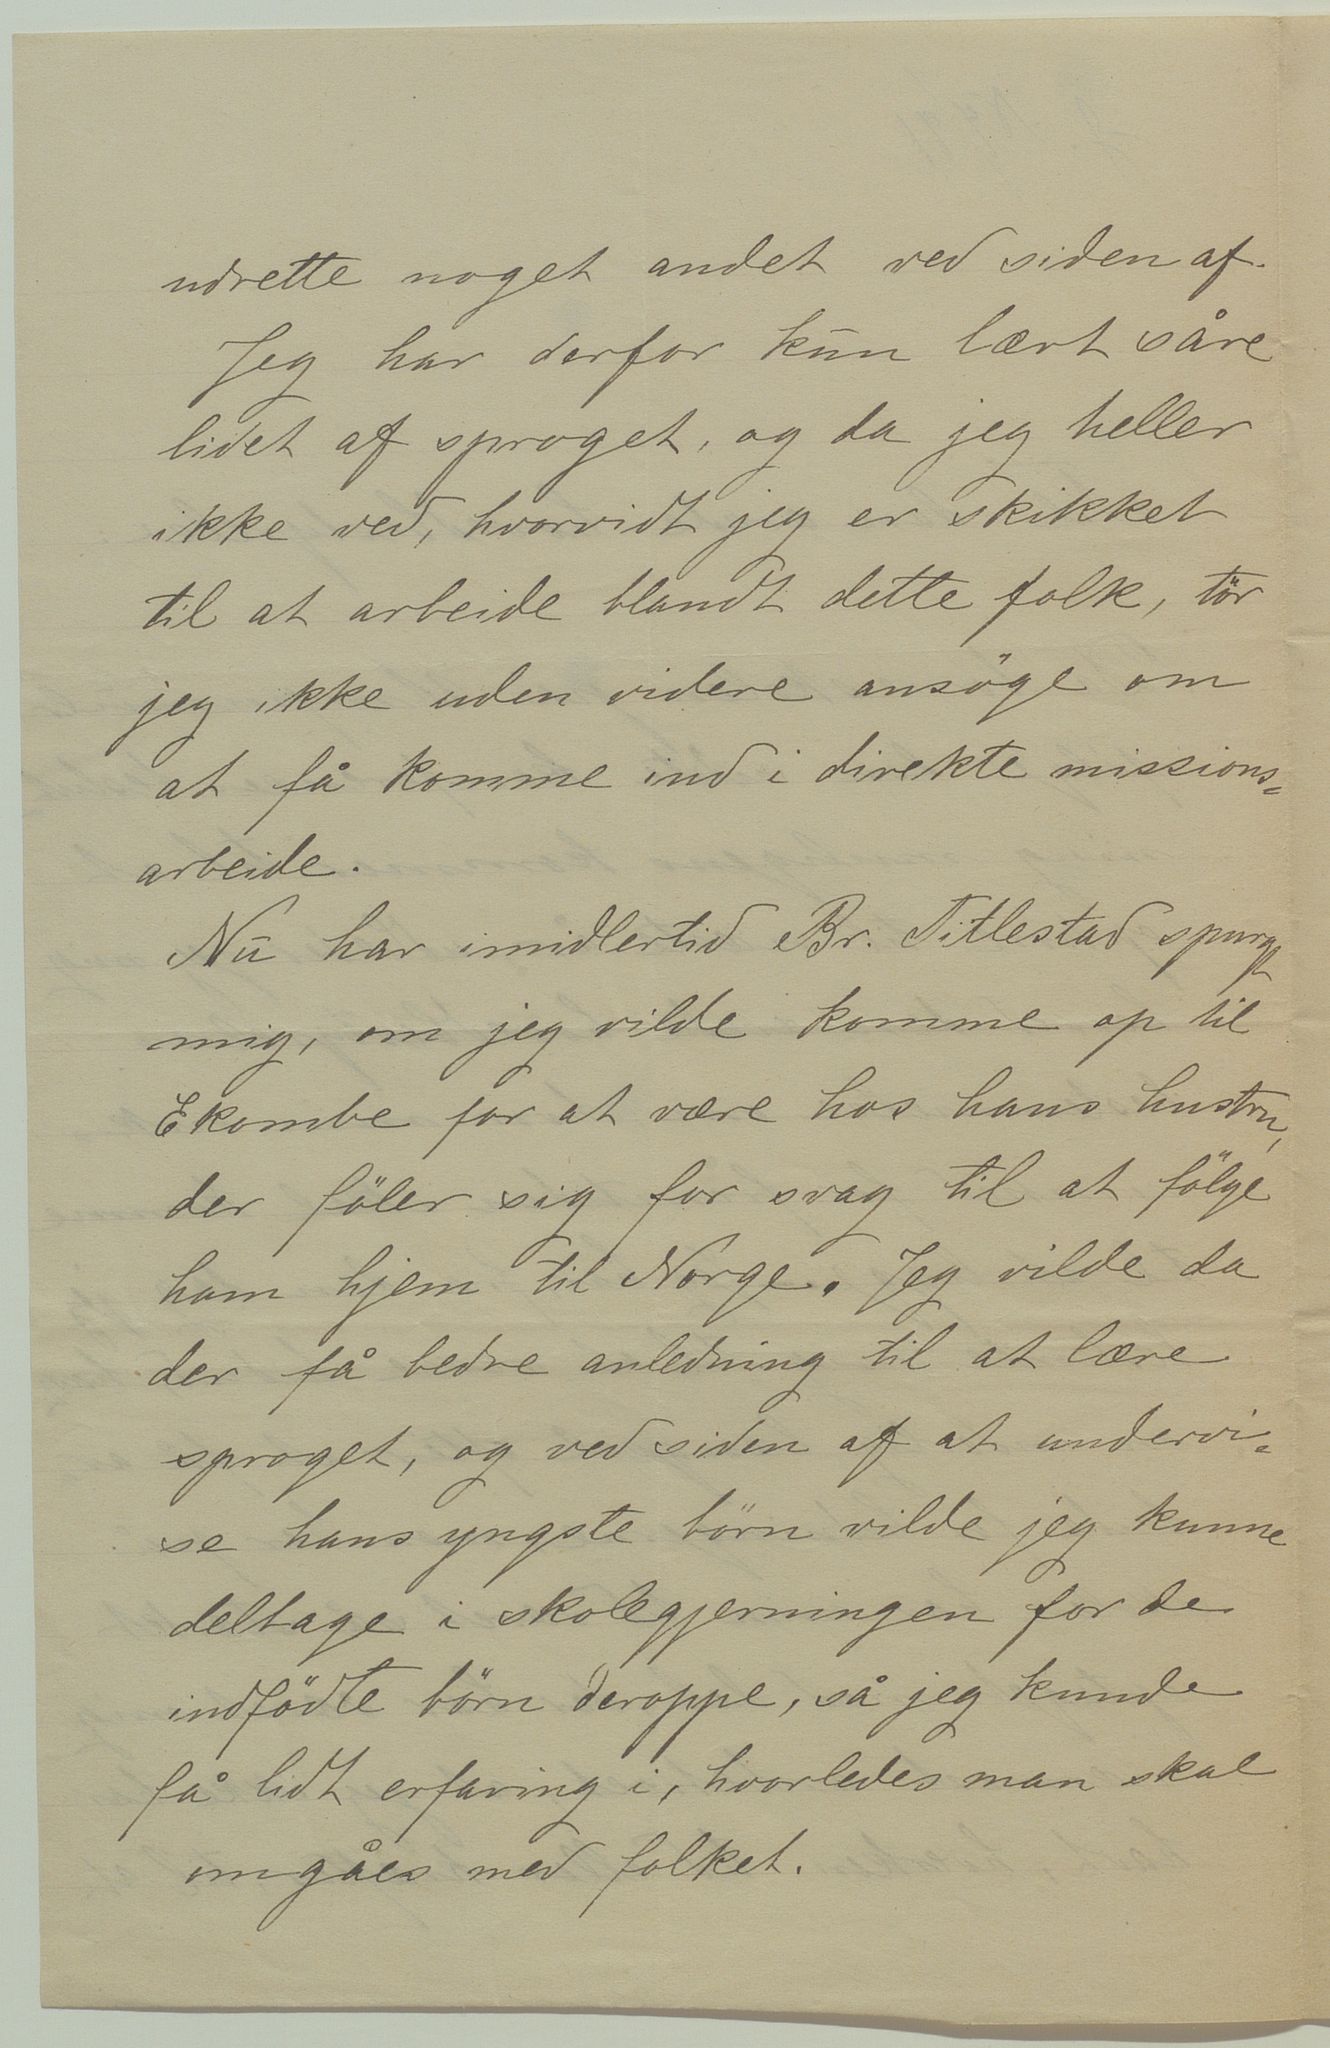 udrette noget andet ved siden af.
Jeg har derfor kūn lært såre
lidet af sproget, og da jeg heller
ikke ved, hvorvidt jeg er skikket
til at arbeide blandt dette folk, tör
jeg ikke uden videre ansöge om
at få komme ind i direkte missions=
arbeide.
Nū har imidlertid Br. Titlestad spurgt
mig, om jeg vilde komme op til
Ekombe for at være hos hans hustru,
der föler sig for svag til at fölge
ham hjem til Norge. Jeg vilde da
der få bedre anledning til at lære
sproget, og ved siden af at undervi=
se hans yngste börn vilde jeg kunne
deltage i skolegjerningen for de
indfödte börn deroppe, så jeg kunde
få lidt erfaring i, hvorledes man skal
omgåes med folket.